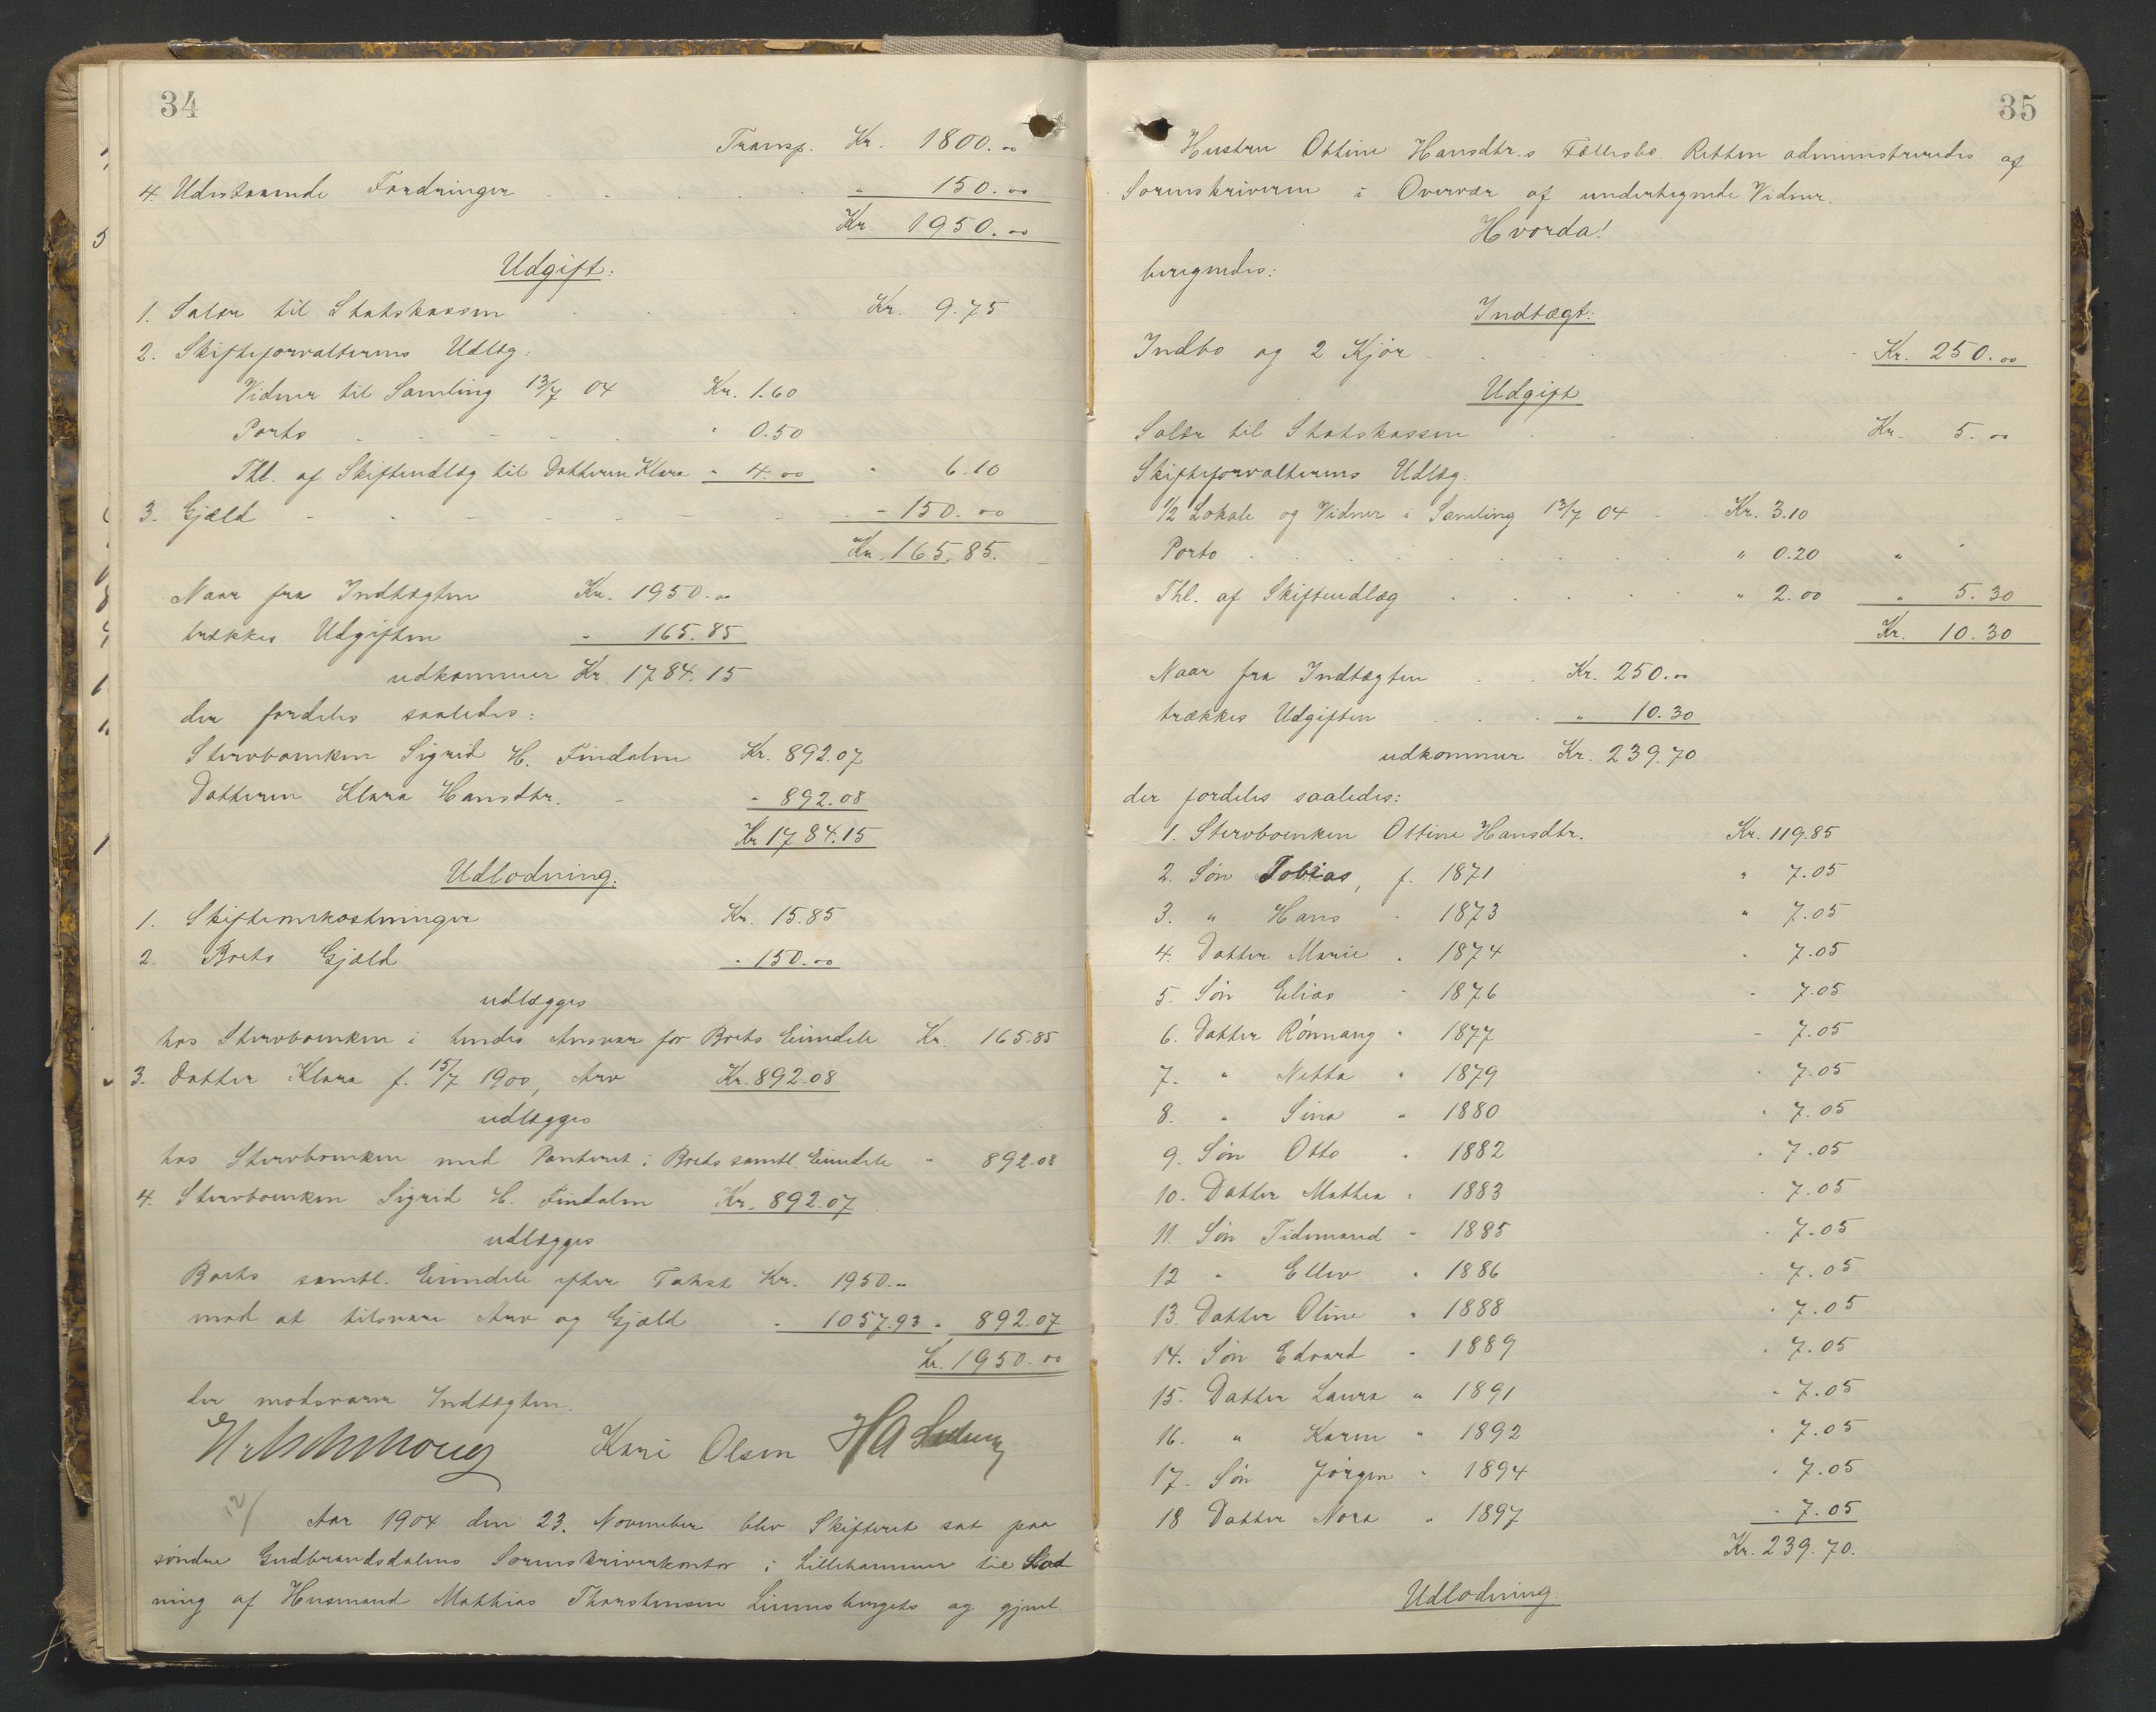 34
Transp. Kr. 1800.00
4. Udestaaende Fordringer " 150.00
Kr. 1950.00
Udgift:
1. Salær til Statskassen Kr. 9.75
2. Skifteforvalterens Udlæg:
Vidner til Samling 13/7 04 Kr. 1.60
Porto " 0.50
Thl. af Skifteudlæg til Datteren Klara " 4.00 " 6.10
3. Gjæld " 150.00
Kr. 165.85.
Naar fra Indtægten Kr. 1950.00
trækkes Udgiften " 165.85
udkommer Kr. 1784.15
der fordeles saaledes:
Stervboenken Sigrid H. Findalen Kr. 892.07
Datteren Klara Hansdtr. " 892.08
Kr 1784.15
Udlodning:
1. Skifteomkostninger Kr. 15.85
2. Boets Gjæld " 150.00
udlægges
hos Stervboenken i hendes Ansvar for Boets Eiendele Kr. 165.85
3. Datter Klara f. 15/7 1900, Arv Kr. 892.08
udlægges
hos Stervboenken med Panteret i Boets samtl. Eiendele " 892.08
4. Stervboenken Sigrid H. Findalen Kr. 892.07
udlægges
Boets samtl. Eiendele efter Takst Kr. 1950.00
mod at tilsvare Arv og Gjæld " 1057.93 " 892.07
Kr. 1950.00
der modsvarer Indtægten.
Kari Olsen
12/
Aar 1904 den 23. November blev Skifteret sat paa
søndre Gudbrandsdalens Sorenskriverkontor i Lillehammer til Lod
ning af Husmand Mathias Thorstensen Linnesbergets og gjenl.
35
Hustru Ottine Hansdtr.s Fællesbo. Retten administreredes af
Sorenskriveren i Overvær af undertegnede Vidner.
Hvorda!
beregnedes:
Indtægt:
Indbo og 2 Kjør Kr. 250.00
Udgift
Salær til Statskassen Kr. 5.00
Skifteforvalterens Udlæg:
1/2 Lokale og Vidner i Samling 13/7 04 Kr. 3.10
Porto " 0.20 " "
Thl. af Skifteudlæg " 2.00 " 5.30
Kr. 10.30
Naar fra Indtægten Kr. 250.00
trækkes Udgiften " 10.30
udkommer Kr. 239.70
der fordeles saaledes:
1. Stervboenken Ottine Hansdtr. Kr. 119.85
2. Søn Tobias, f. 1871 " 7.05
3. " Hans " 1873 " 7.05
4. Datter Marie " 1874 " 7.05
5. Søn Elias " 1876 " 7.05
6. Datter Rønnaug " 1877 " 7.05
7. " Netta " 1879 " 7.05
8. " Sina " 1880 " 7.05
9. Søn Otto " 1882 " 7.05
10. Datter Mathea " 1883 " 7.05
11. Søn Tidemand " 1885 " 7.05
12 " Ellev " 1886 " 7.05
13. Datter Oline " 1888 " 7.05
14. Søn Edvard " 1889 " 7.05
15. Datter Laura " 1891 " 7.05
16. " Karen " 1892 " 7.05
17. Søn Jørgen " 1894 " 7.05
18 Datter Nora " 1897 " 7.05
Kr. 239.70.
Udlodning.